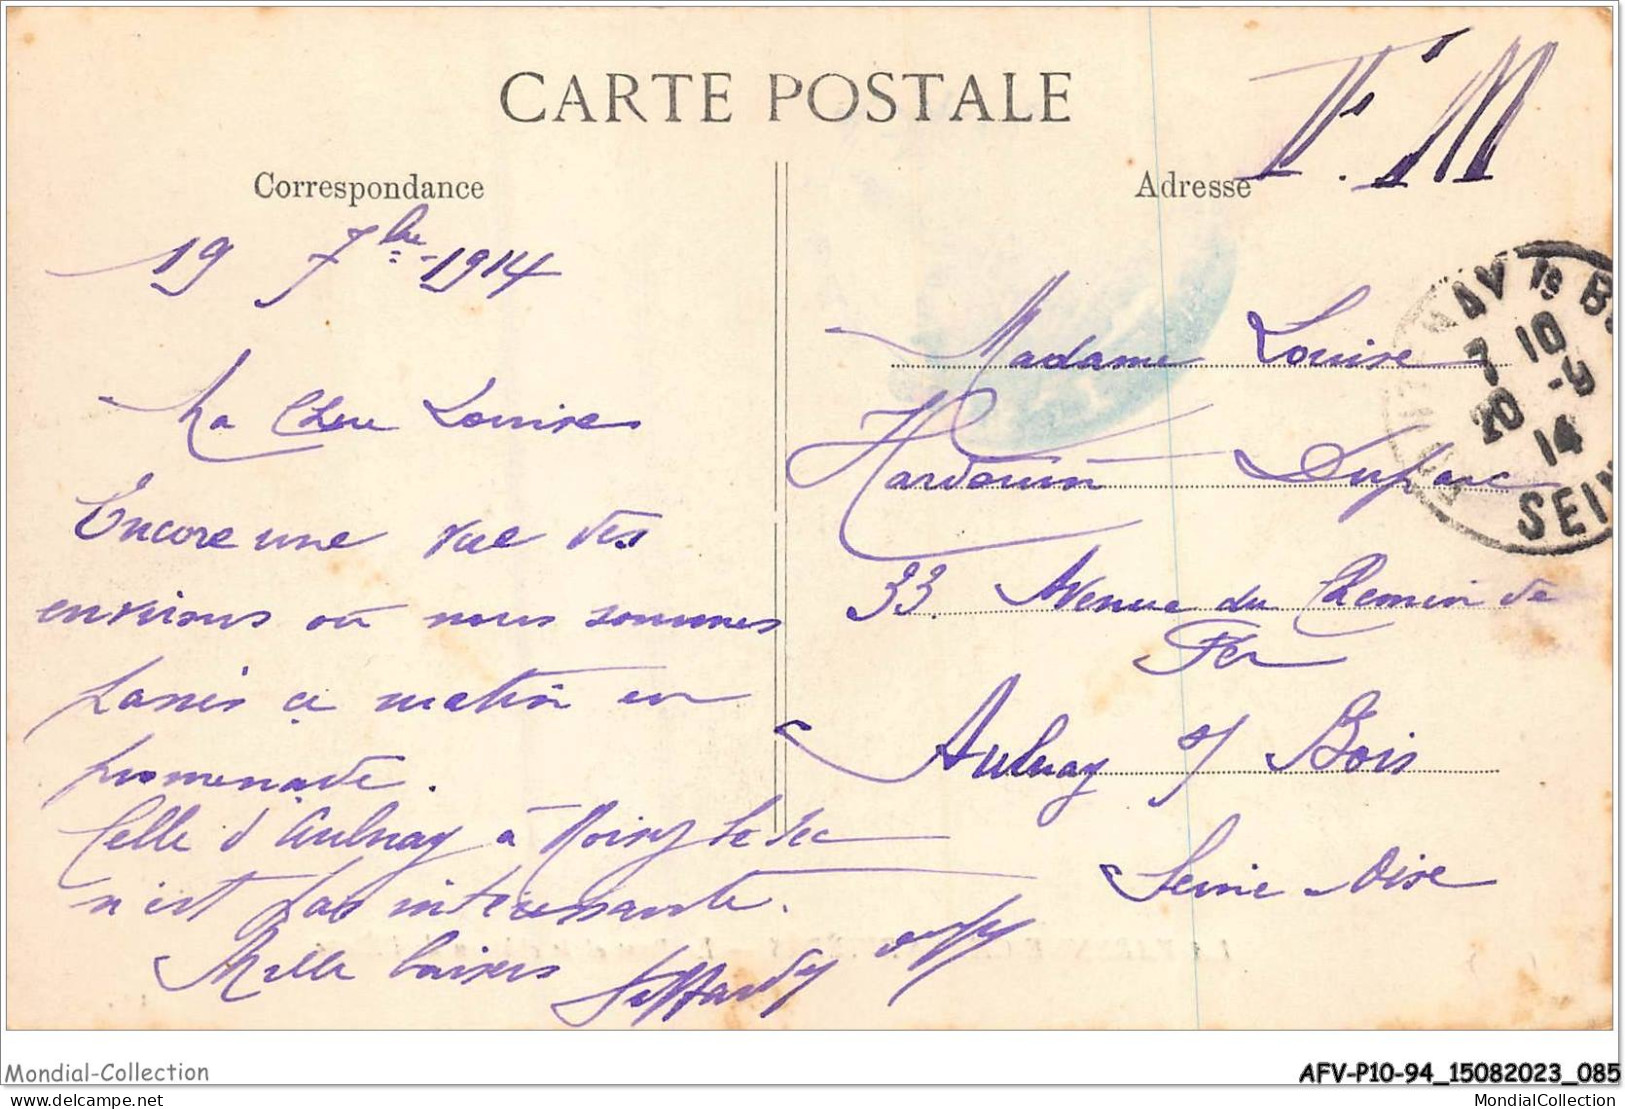 CARTE POSTALE
F. M
Correspondance
Adresse
19 7bre 1914
Ma Chere Louise
Encore une vue des
environs où nous sommes
passés ce matin en
promenade.
Celle d'Aulnay à Noisy le Sec
n'est pas intéressante.
Mille baisers
Madame Louise
Hardouin Duparc
33 Avenue du Chemin de
Fer
Aulnay s/ Bois
Seine - Oise
AULNAY LS BO
7 10
20 -9
14
SEIN
Mondial-Collection
AFV-P10-94_15082023_085
delcampe.net
MondialCollection